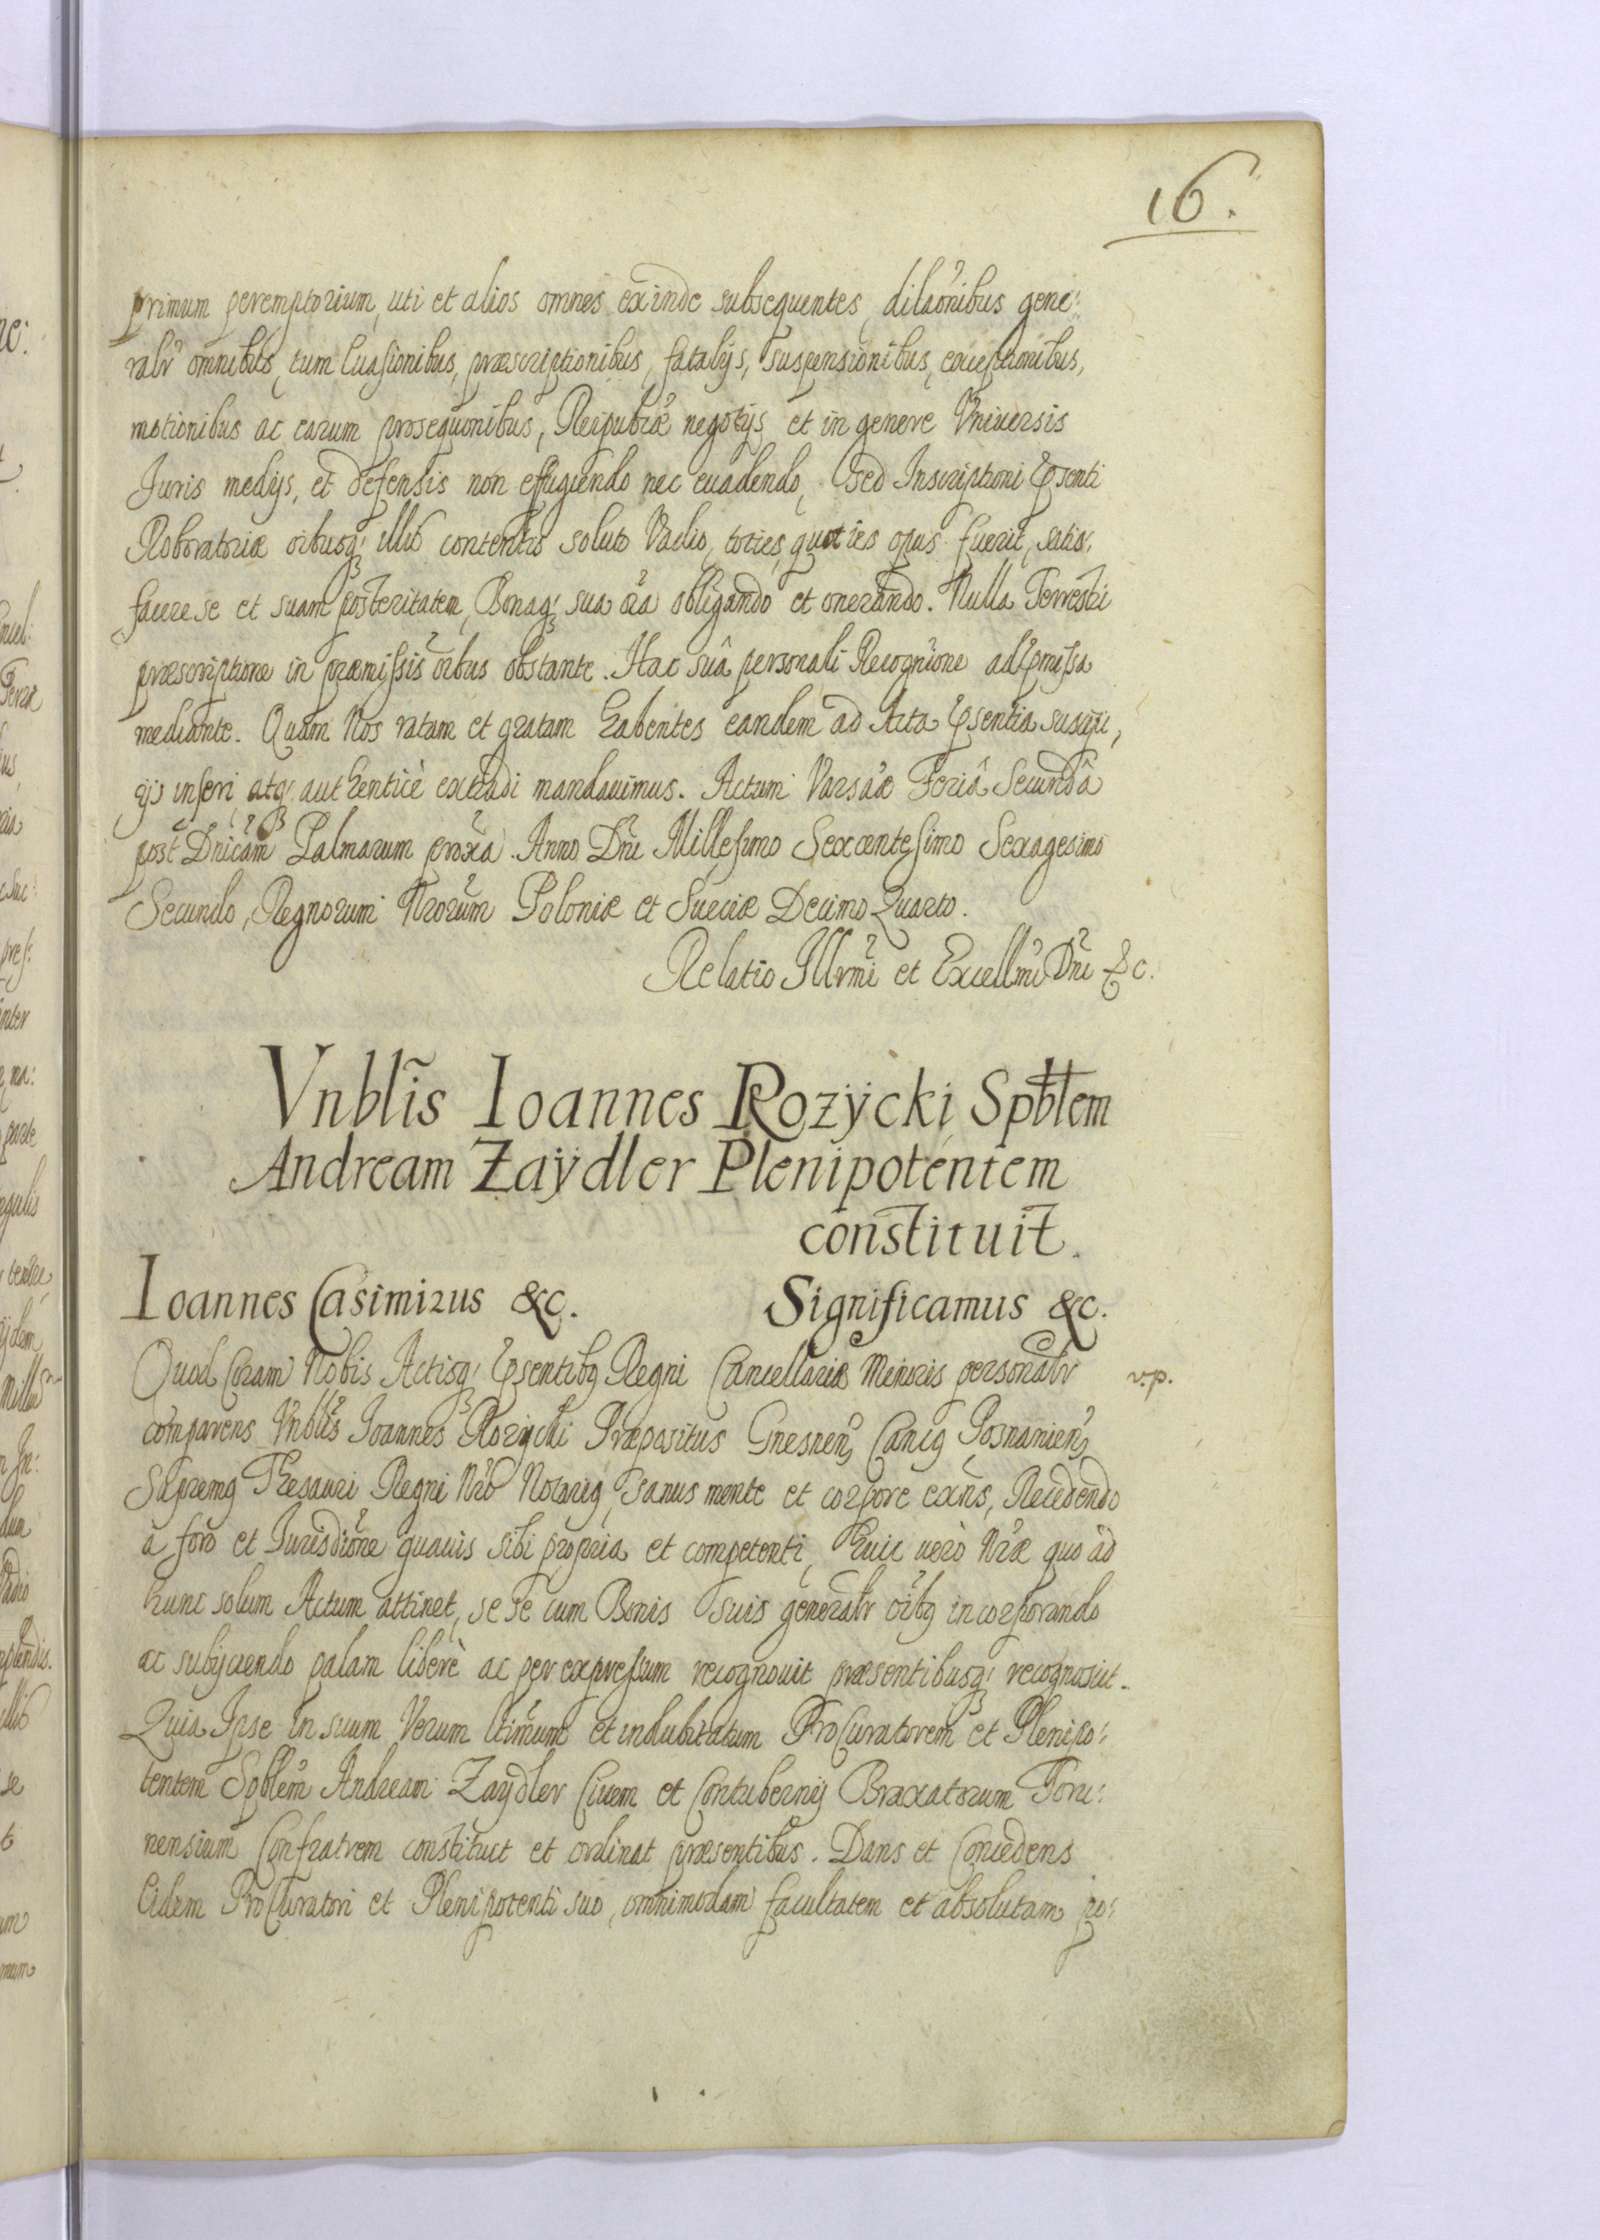 16.
primum peremptorium, uti et alios omnes exinde subsequentes, dilaõnibus gene:
ralr omnibus, tum Euasionibus, præscriptionibus, fatalijs, suspensionibus, exceptionibus,
motionibus ac earum prosequõnibus, Reipublæ negotijs et in genere Vniuersis
Juris medijs, et defensis non effugiendo nec euadendo, sed Inscriptioni Pñsenti
Roboratoriæ oĩbusq; illius contentis soluto Vadio, toties quoties opus fuerit, satis:
facere se et suam posteritatem, Bonaq; sua oĩa obligando et onerando. Nulla Terrestri
præscriptione in præmissis oĩbus obstante. Hac suâ personali Recognĩone ad Pmissa
mediante. Quam Nos ratam et gratam habentes eandem ad Acta Psentia suscipi,
ijs inseri atq; authenticè extradi mandauimus. Actum Varsaæ Feriâ Secundâ
post Dnicam Palmarum proxa. Anno Dni Millesimo Sexcentesimo Sexagesimo
Secundo, Regnorum Nrorum Poloniæ et Sueciæ Decimo Quarto.
Relatio Illrmi et Excellmi Dni &c.
Vnblis Ioannes Rozycki Spblem
Andream Zaydler Plenipotentem
constituit.
Ioannes Casimirus &c. Significamus &c.
Quod Coram Nobis Actisq; Psentibg Regni Cancellariæ Minoris personalr v.p.
comparens Vnblis Joannes Rozycki Præpositus Gnesnen, Canig Posnanien,
Supremg Thesauri Regni Nri Notarig, sanus mente et corpore exns, Recedendo
à foro et Jurisdione quauis sibi propria et competenti, huic uerò Nræ quo ad
hunc solum Actum attinet, se se cum Bonis suis generalr oibg incorporando
ac subijciendo palam liberè ac per expressum recognouit præsentibusq; recognoscit.
Quia Ipse in suum Verum ltimum et indubitatum ProCuratorem et Plenipo:
tentem Spblem Andream Zaydler Ciuem et Contubernij Braxatorum Toru:
nensium Confratrem constituit et ordinat præsentibus. Dans et Concedens
Eidem ProCuratori et Plenipotenti suo, omnimodam facultatem et absolutam po: